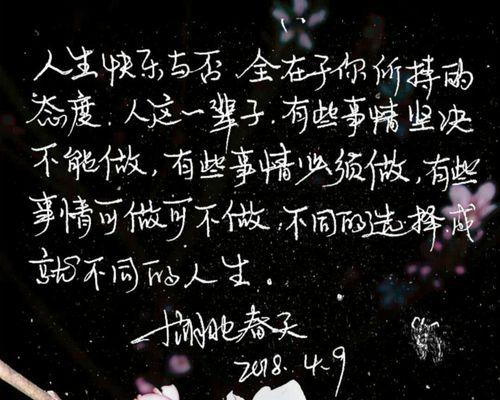 人生快乐与否.全在于你所持的
态度.人这一辈子.有些事情坚决
不能做,有些事情必须做,有些
事情可做可不做.不同的选择.成
就不同的人生.
春天
2018.4.9